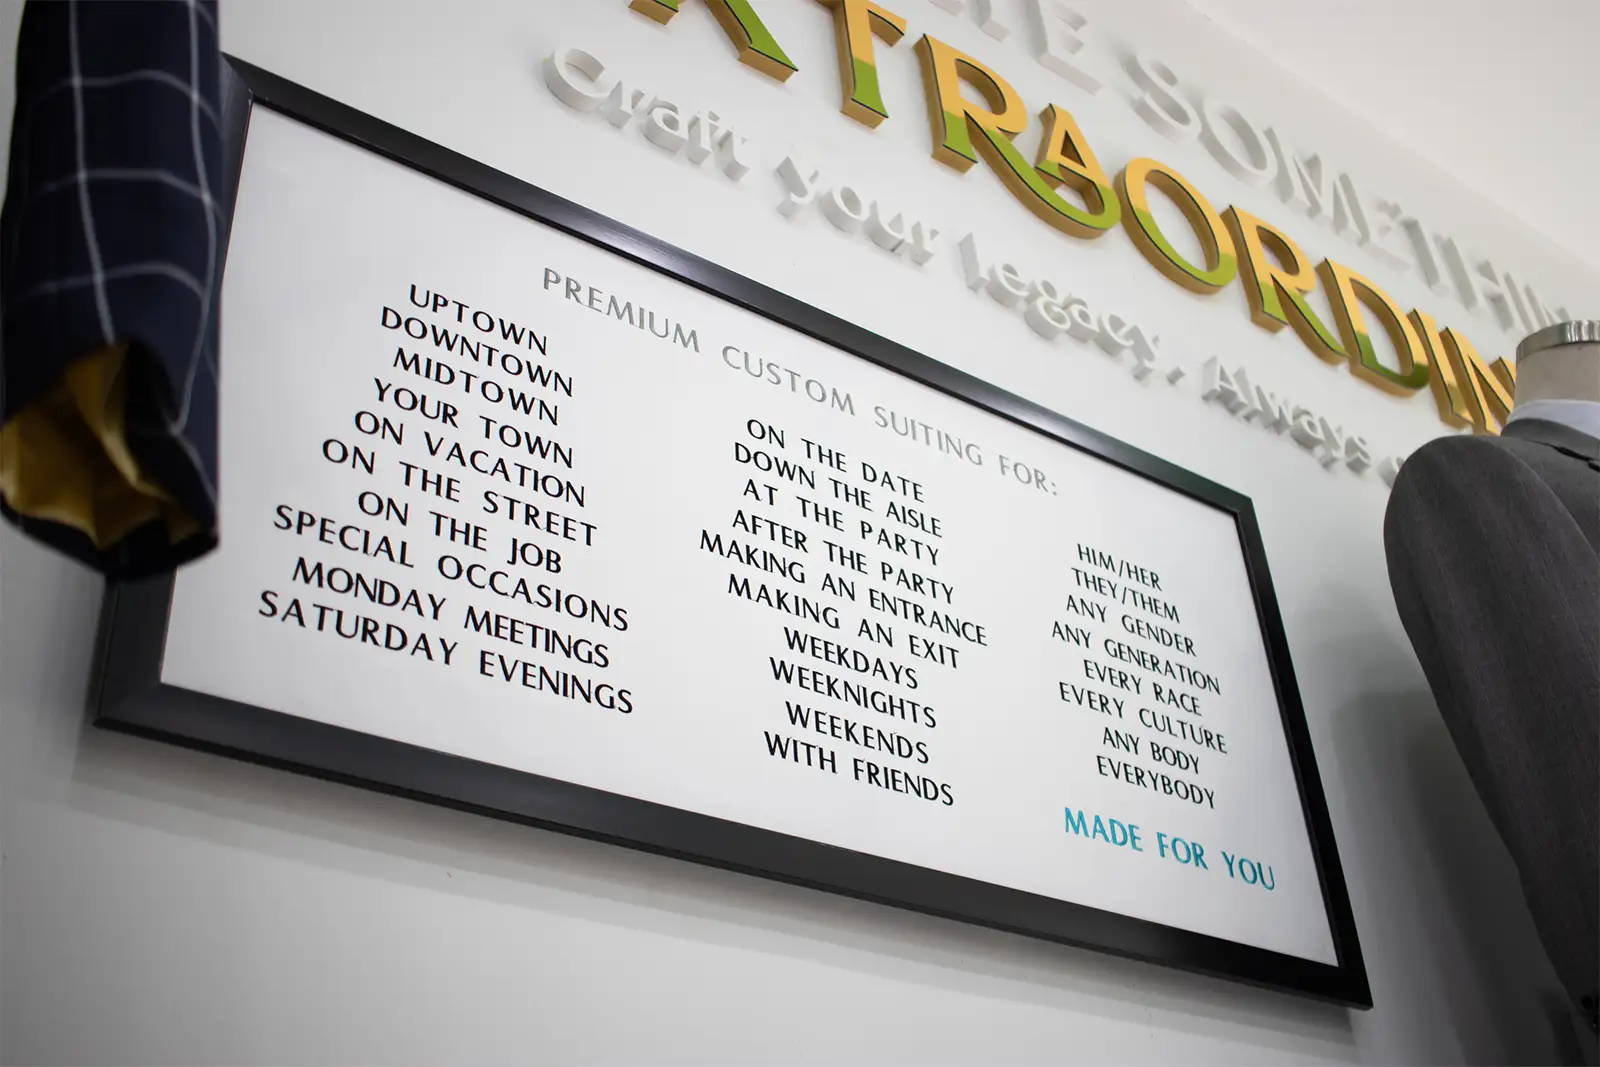 SOMETHIN
XTRAORDIN
Craft your Legacy, Always
PREMIUM CUSTOM SUITING FOR:
UPTOWN
DOWNTOWN
MIDTOWN
YOUR TOWN
ON VACATION
ON THE STREET
ON THE JOB
SPECIAL OCCASIONS
MONDAY MEETINGS
SATURDAY EVENINGS
ON THE DATE
DOWN THE AISLE
AT THE PARTY
AFTER THE PARTY
MAKING AN ENTRANCE
MAKING AN EXIT
WEEKDAYS
WEEKNIGHTS
WEEKENDS
WITH FRIENDS
HIM/HER
THEY/THEM
ANY GENDER
ANY GENERATION
EVERY RACE
EVERY CULTURE
ANY BODY
EVERYBODY
MADE FOR YOU